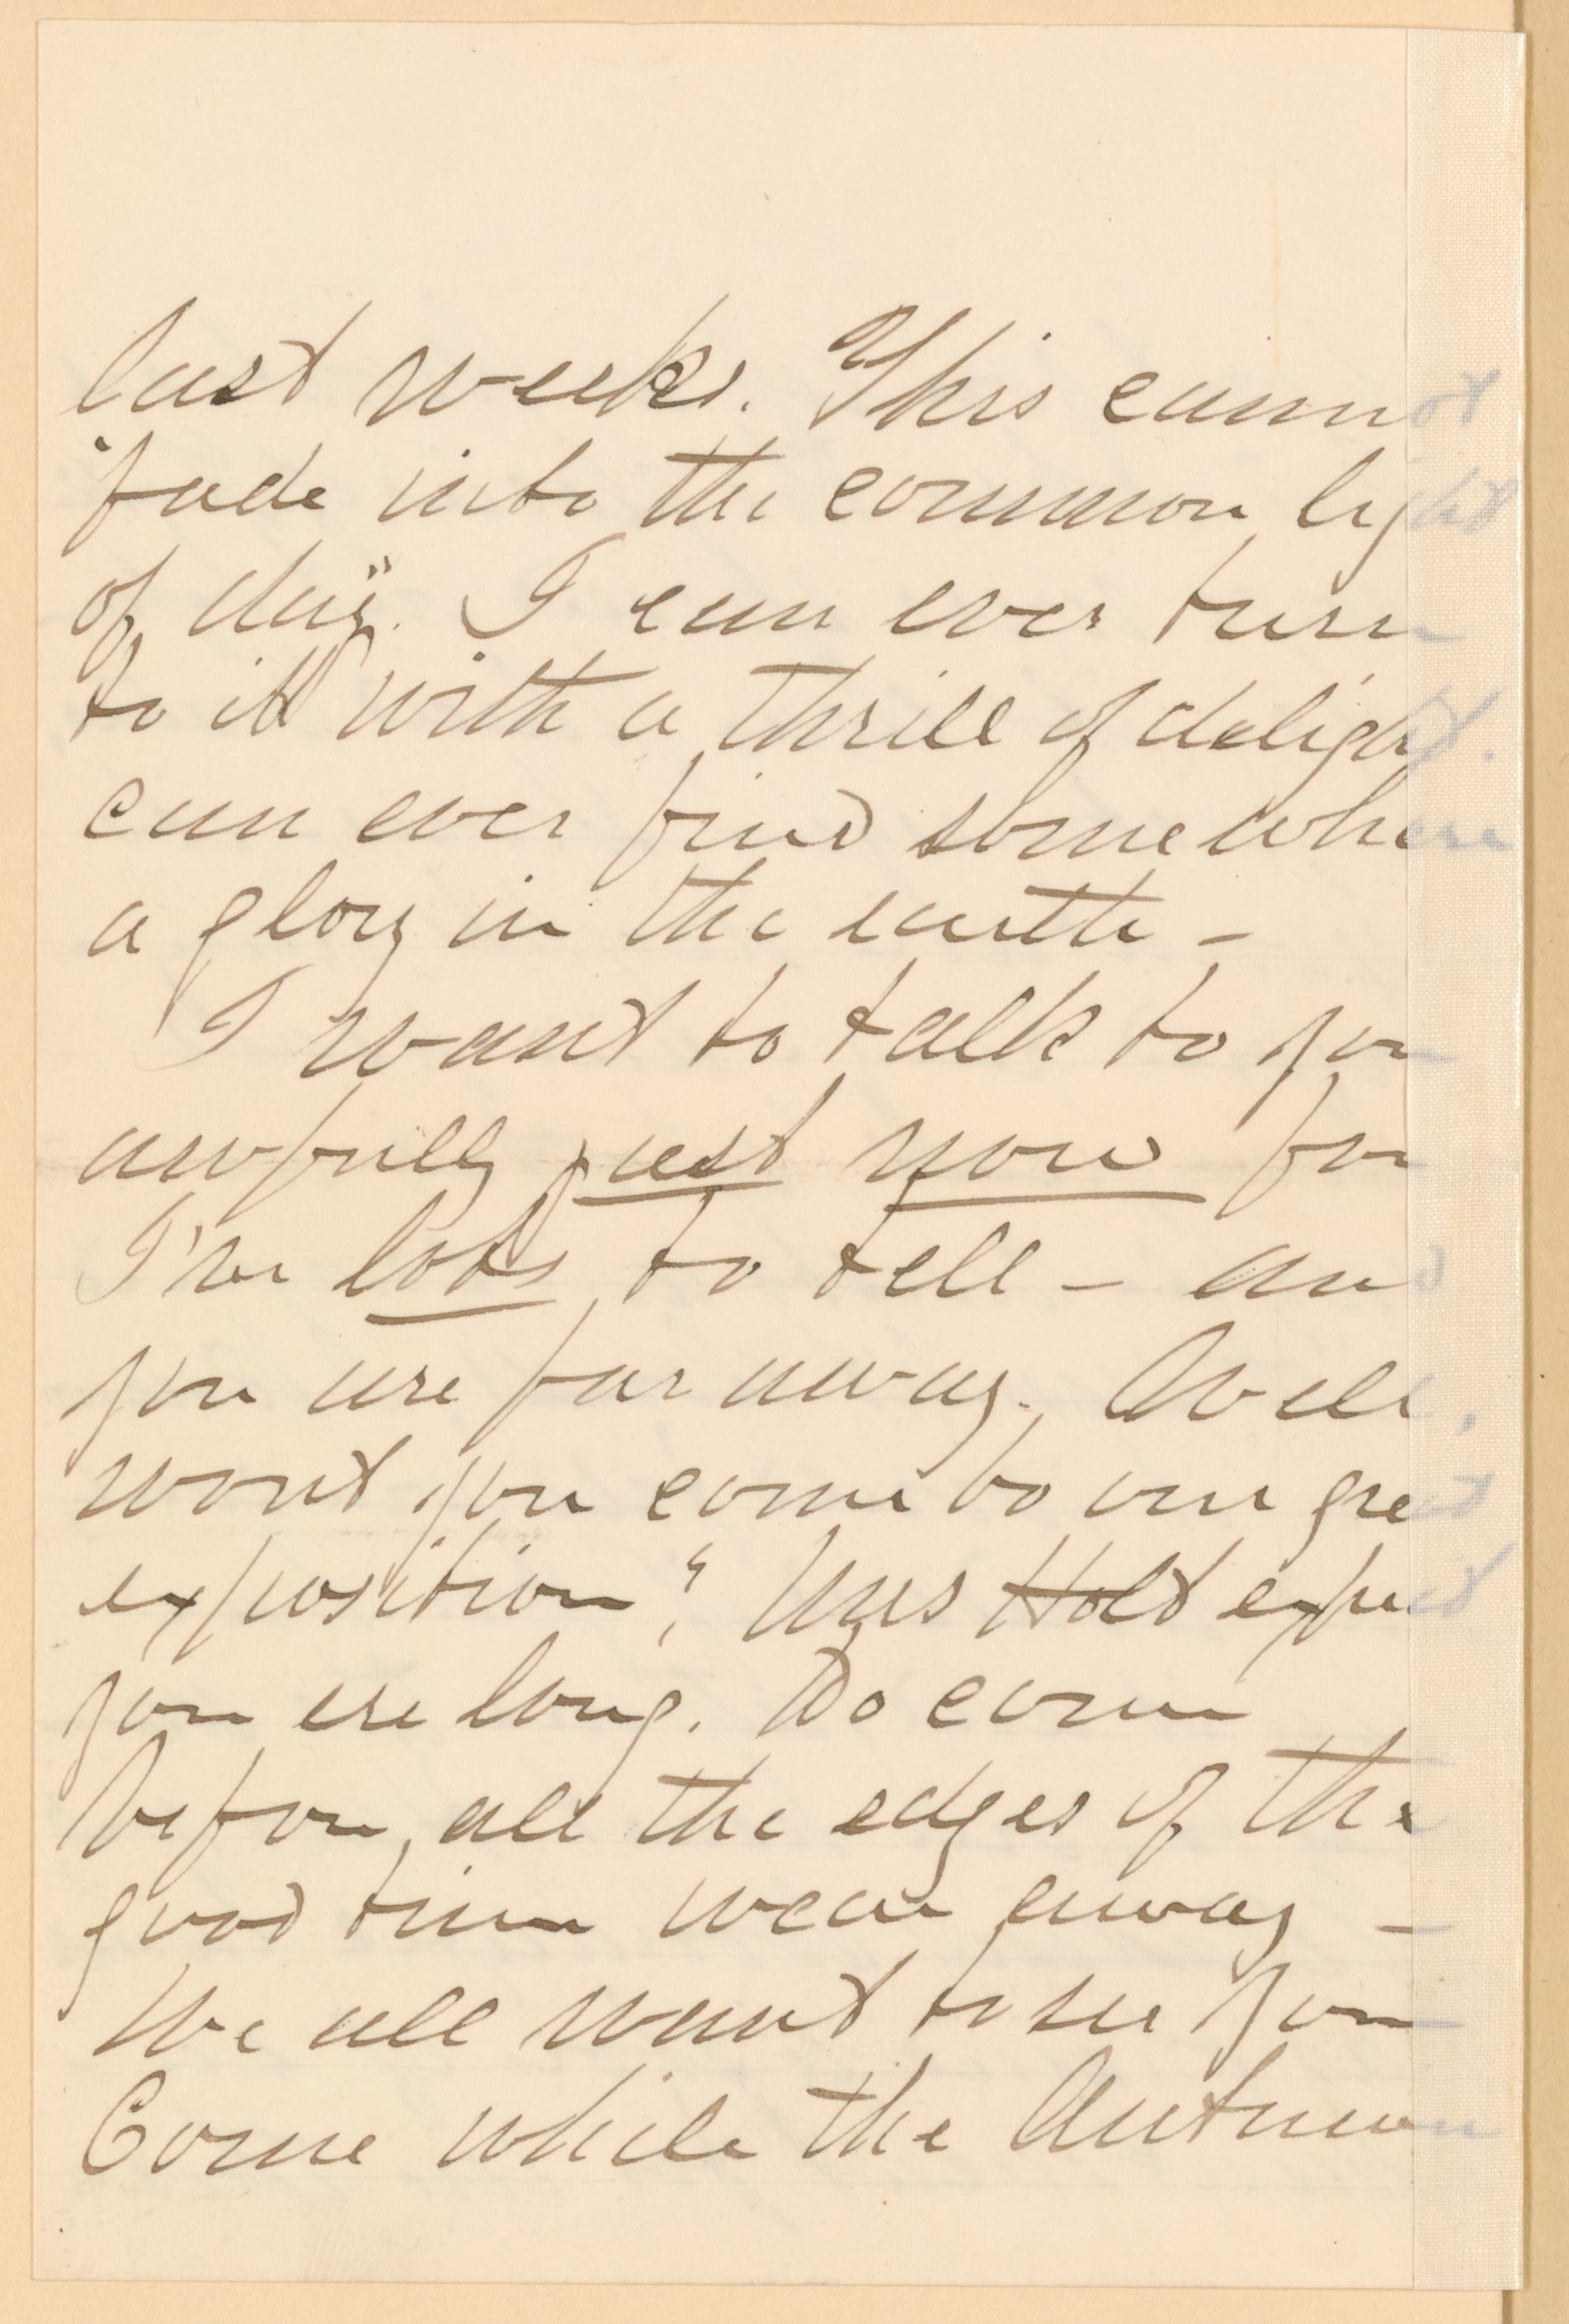 last weeks. This cannot
"fade into the common light
of day". I can ever turn
to it with a thrill of delight.
can ever find somewhere
a glory in the earth –
I want to talk to you
awfully just now for
I've lots to tell – and
you are far away. Well,
wont you come to our great
exposition? Mrs Holt expect
you ere long. Do come
before all the edges of the
good time wear away –
We all want to see you
Come while the Autumn